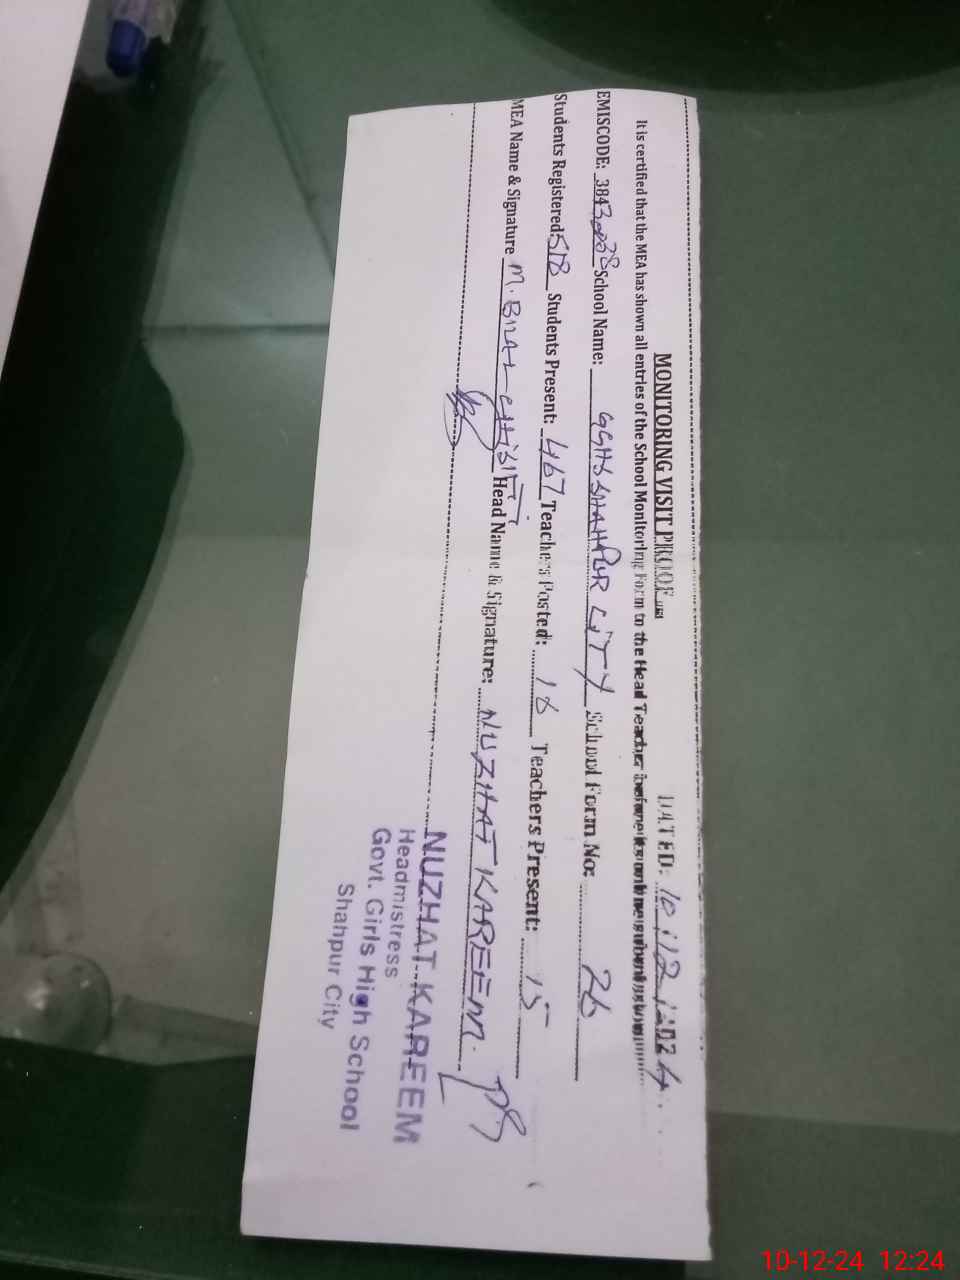 MONITORING VISIT PROOF DATED: 10/12/2024
It is certified that the MEA has shown all entries of the School Monitoring Form to the Head Teacher before its online submission
EMISCODE: 3843 School Name: GGHS SHAHPUR CITY School Form No: 26
Students Registered 518 Students Present: 467 Teachers Posted: 18 Teachers Present: 15
MEA Name & Signature M. BILAL CHISHTI Head Name & Signature: NUZHAT KAREEM.
NUZHAT KAREEM
Headmistress
Govt. Girls High School
Shahpur City
10-12-24 12:24